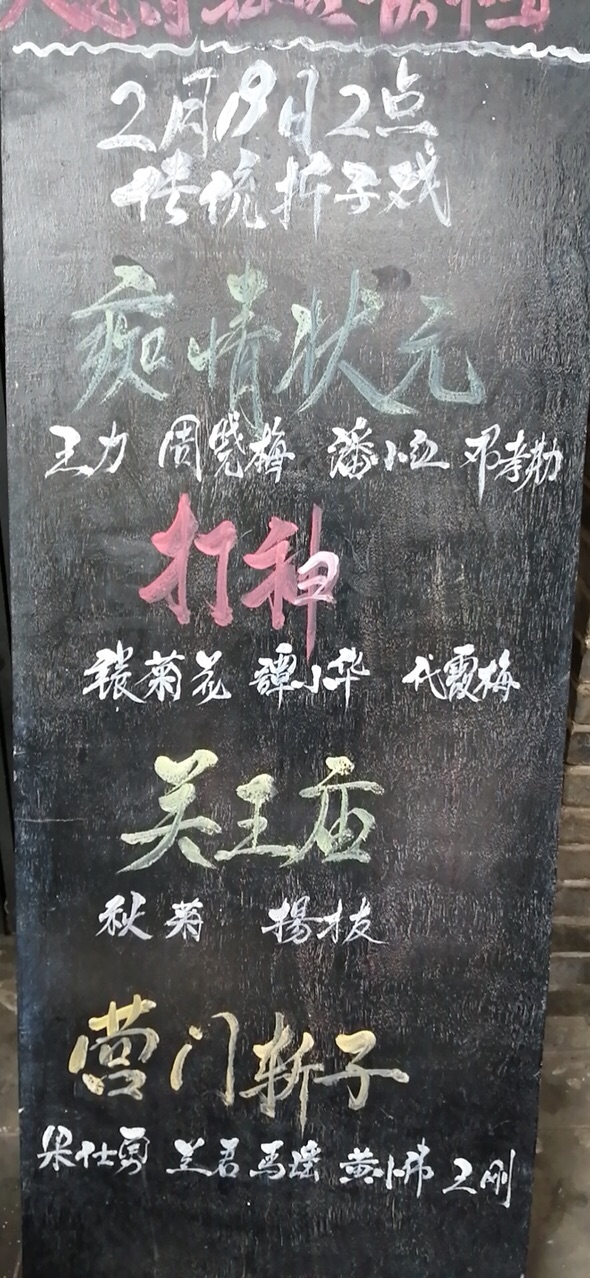 2月19日2点
传统折子戏
痴情状元
王力 周晓梅 潘小虹 邓孝勤
打神
张菊花 譚小华 代霞梅
关王庙
秋菊 揚枝
营门斩子
梁仕勇 兰君 馬瑶 黄小伟 王刚